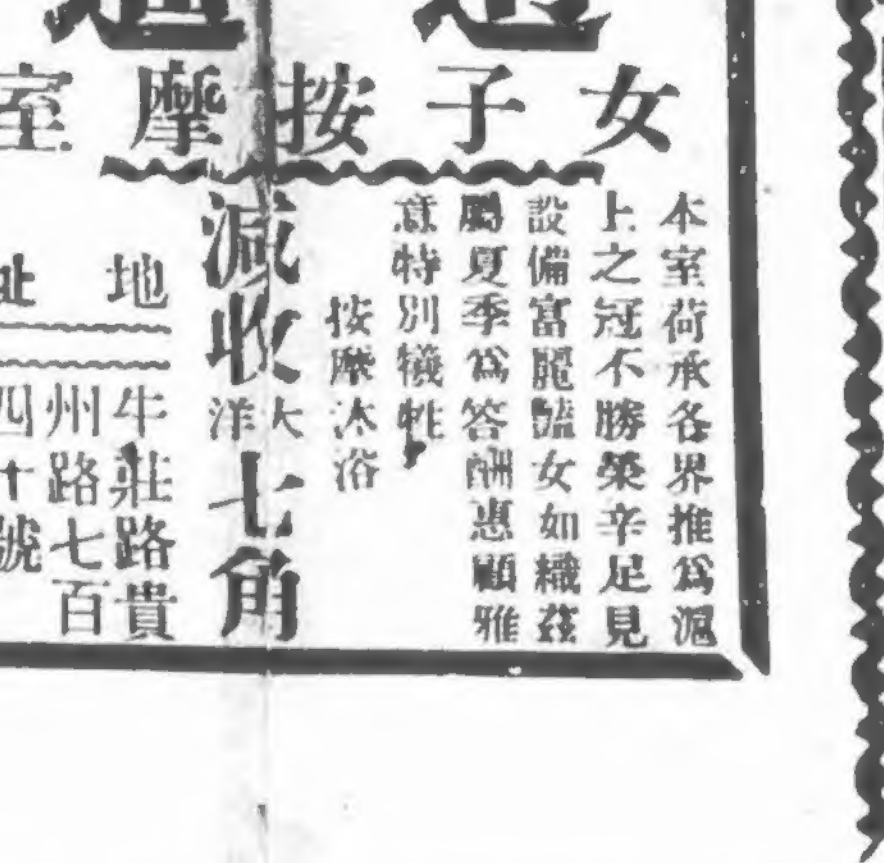 女子按摩室
本室荷承各界推爲滬
上之冠不勝榮幸足見
設備富麗豔女如織茲
屬夏季爲答酬惠顧雅
意特別犧牲
按摩沐浴
減收大洋七角
地址
牛莊路貴
州路七百
四十號